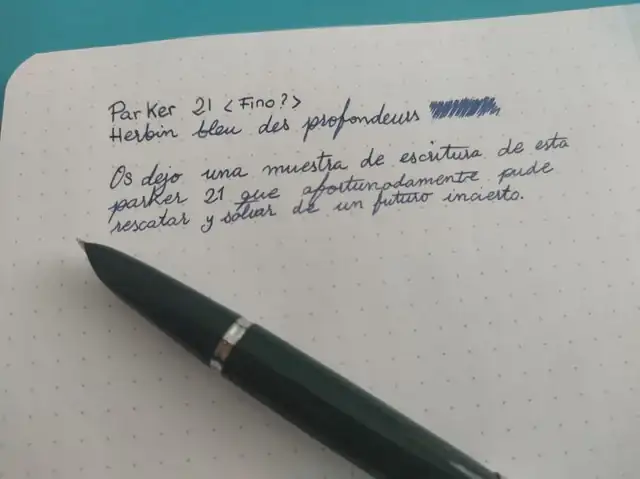 Parker 21 <Fino?>
Herbin bleu des profondeurs
Os dejo una muestra de escritura de esta
parker 21 que afortunadamente pude
rescatar y salvar de un futuro incierto.